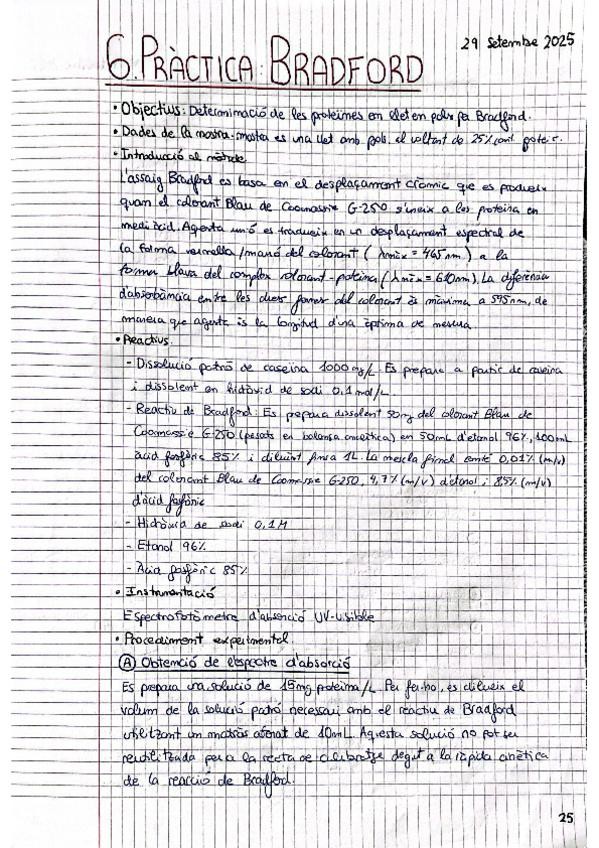 29 Setembre 2025
6. PRÀCTICA: BRADFORD
• Objectius: Determinació de les proteïnes en llet en pols pe Bradford.
• Dades de la mostra: mostra es una llet amb pols, el voltant de 25%
• Introducció al mètode
L'assaig Bradford es basa en el desplaçament cròmic que es produeix
quan el colorant Blau de Coomassie G-250 s'uneix a les proteïna en
medi àcid. Aquesta unió es tradueix en un desplaçament espectral de
la forma vermella/marró del colorant (λmàx = 465nm) a la
forma blava del complex colorant-proteïna (λmàx = 610nm). La diferència
d'absorbància entre les dues formes del colorant és màxima a 595nm, de
manera que aquesta és la longitud d'ona òptima de mesura.
• Reactius:
- Dissolució patró de caseïna 1000mg/L. Es prepara a partir de caseïna
i dissolent en hidròxid de sodi 0,1mol/L.
- Reactiu de Bradford: Es prepara dissolent 50mg del colorant Blau de
Coomassie G-250 (pesats en balança analítica) en 50mL d'etanol 96%, 100mL
àcid fosfòric 85% i diluint fins a 1L. La mescla final 0,01% (m/v)
del colorant Blau de Coomassie G-250, 4,7% (m/v) d'etanol i 85% (m/v)
d'àcid fosfòric
- Hidròxid de sodi 0,1M
- Etanol 96%
- Àcid fosfòric 85%
• Instrumentació
Espectrofotòmetre d'absorció UV-visible
• Procediment experimental.
(A) Obtenció de l'espectre d'absorció
Es prepara una solució de 15mg proteïna/L. Per fer-ho, es dilueix el
volum de la solució patró necessari amb el reactiu de Bradford
utilitzant un matràs aforat de 10mL. Aquesta solució no pot ser
reutilitzada per a la recta de calibratge degut a la ràpida cinètica
de la reacció de Bradford.
25